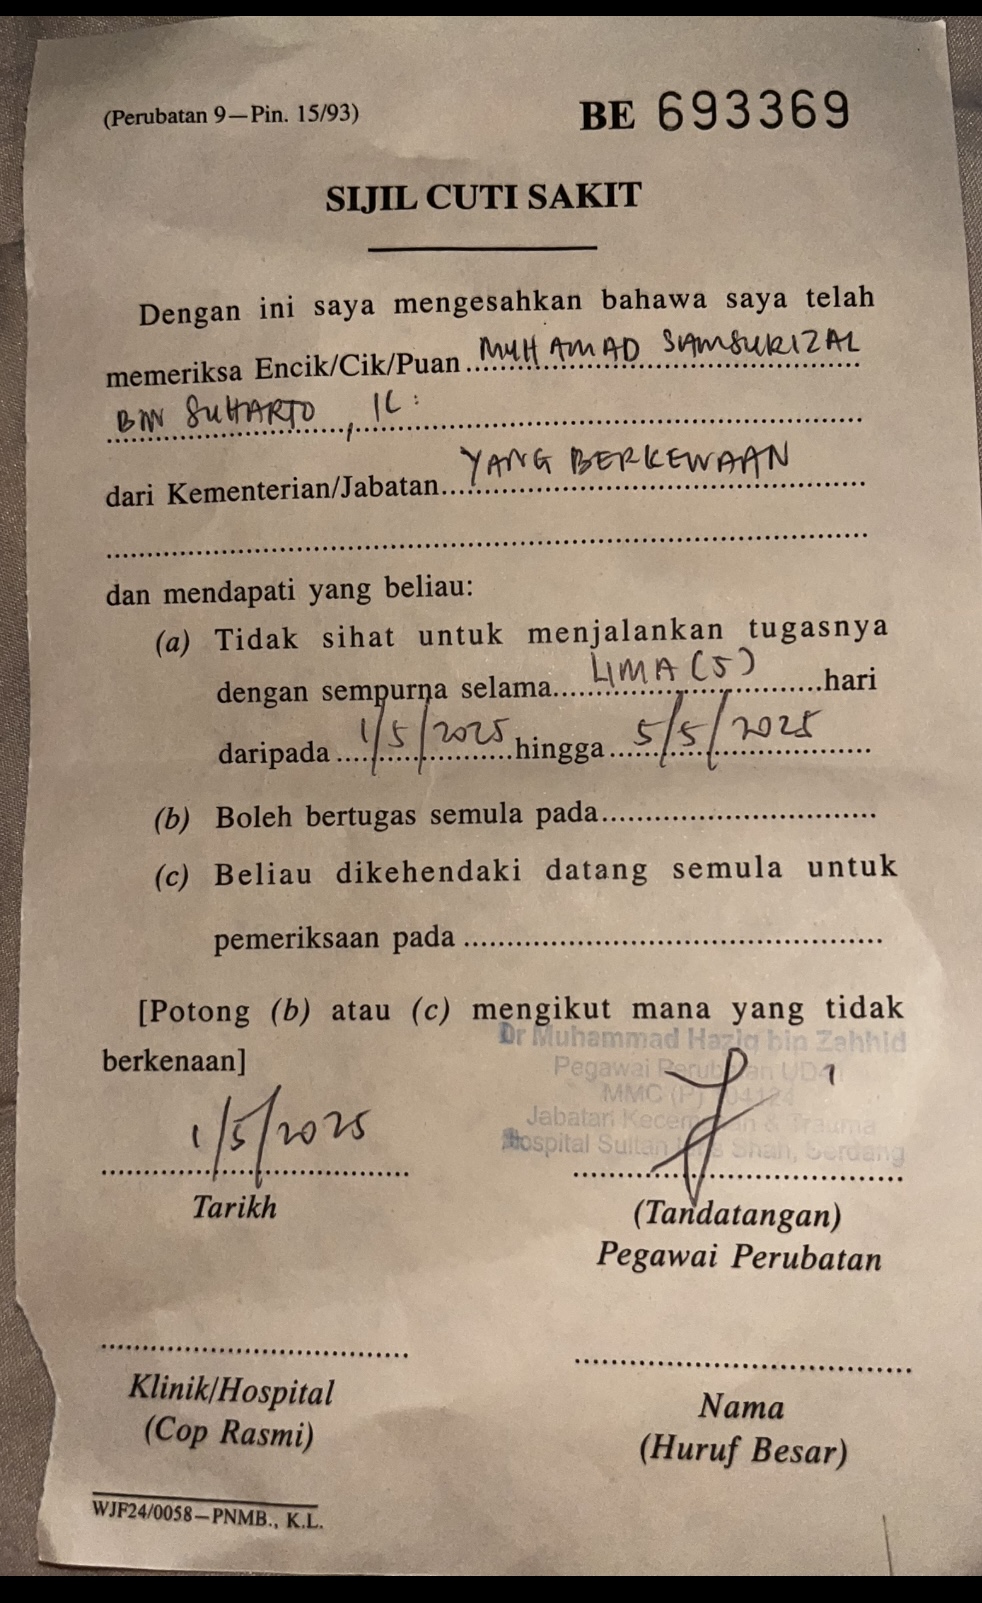 (Perubatan 9—Pin. 15/93)
BE 693369
SIJIL CUTI SAKIT
Dengan ini saya mengesahkan bahawa saya telah
memeriksa Encik/Cik/Puan MUHAMAD SAMSURIZAL
BIN SUHARTO, IC:
dari Kementerian/Jabatan YANG BERKEWAAN
dan mendapati yang beliau:
(a) Tidak sihat untuk menjalankan tugasnya
dengan sempurna selama LIMA (5) hari
daripada 1/5/2025 hingga 5/5/2025
(b) Boleh bertugas semula pada
(c) Beliau dikehendaki datang semula untuk
pemeriksaan pada
[Potong (b) atau (c) mengikut mana yang tidak
berkenaan]
Dr Muhammad Haziq bin Zahhid
Pegawai Perubatan
MMC (P)
Jabatan Kecemasan & Trauma
Hospital Sultan Idris Shah, Serdang
1/5/2025
Tarikh
(Tandatangan)
Pegawai Perubatan
Klinik/Hospital
(Cop Rasmi)
Nama
(Huruf Besar)
WJF24/0058—PNMB., K.L.